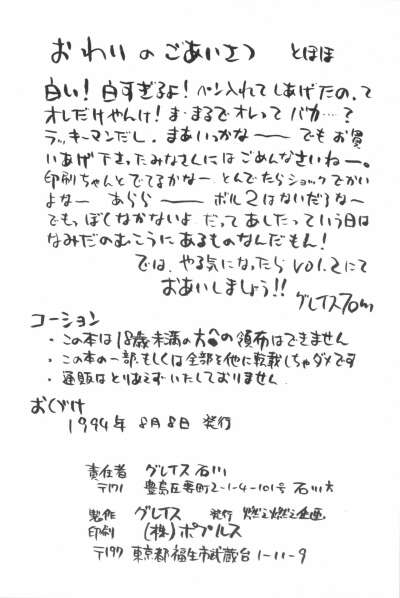 おわりのごあいさつ とほほ
白い! 白すぎるよ! ペン入れてしあげたの、て
オレだけやんけ! ま・まるでオレって バカ…?
ラッキーマンだし、まあいっかな〜 でもお買
いあげ下さったみなさんにはごめんなさいねー。
印刷ちゃんとでてるかなー とんでたらショックでかい
よなー あらら〜 ボル2はないだろな〜
でもっ ぼくなかないよ だってあしたっていう日は
なみだのむこうにあるものなんだもん!
では、やる気になったら vol.2にて
おあいしましょう!!
グレイス石川
コーション
・この本は18歳未満の方への頒布はできません
・この本の一部もしくは全部を他に転載しちゃダメです
・通販はとりあえずいたしておりません
おくづけ
1994年 8月8日 発行
責任者 グレイス石川
〒171 豊島区要町2-1-4-101号 石川方
製作 グレイス 発行 燃え燃え企画
印刷 (株)ポプルス
〒197 東京都福生市武蔵台1-11-9